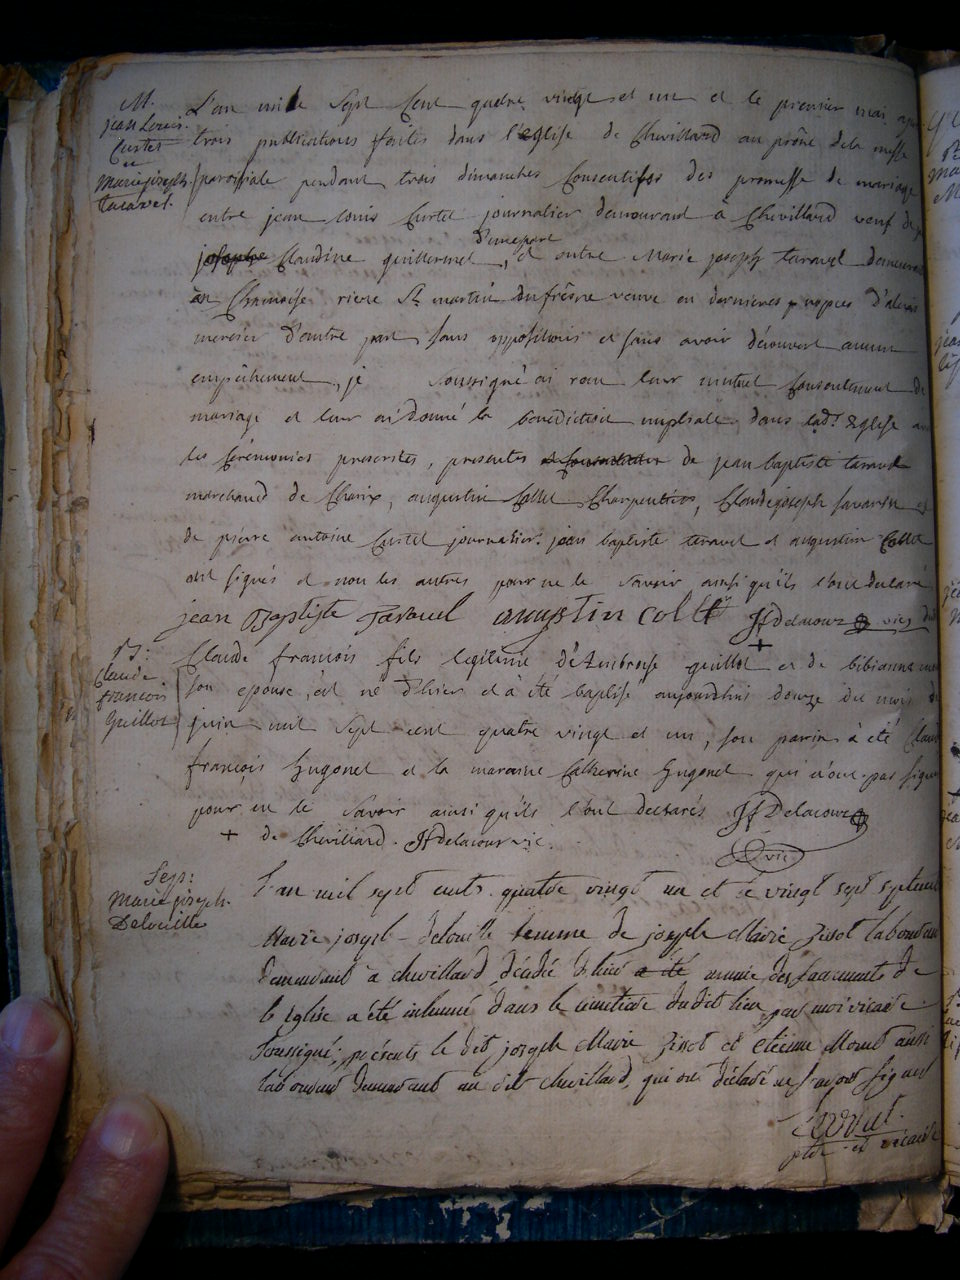 M.
jean Louis
Curtet
et
Marie joseph
taravel.
L'an mille Sept Cent quatre vingt et un et le premier mai
trois publications faites dans l'eglise de Chevillard au prône dela messe
paroissiale pendant trois dimanches Consecutifs des promesse de mariage
entre jean Louis Curtet journalier demeurant à Chevillard veuf de
Claudine guillermet, d'unepart et outre Marie joseph taravel
en riere St martin dufresne veuve en dernieres nopces d'alexis
mercier d'autre part sans oppositions et sans avoir découvert aucun
empêchement, je soussigné ai reçu leur mutuel Consentement de
mariage et leur ai donné la bénédiction nuptiale dans lad.e Eglise
les Cérémonies prescrites, presentes de jean baptiste taravel
marchand de Charix, augustin Collet Charpentier, Claudejoseph savarin et
de pierre antoine Curtet journalier. jean baptiste taravel et augustin Collet
ont signés et non les autres pour ne le savoir ainsi qu'ils l'ont declaré
jean Baptiste Taravel augustin Colet JfDelacour vic
B:
Claude
francois
guillot
Claude francois fils legitime d'Ambroise guillot et de bibianne
son epouse, est né d'hier et à été baptisé aujourdhui douze du mois de
juin mil sept cent quatre vingt et un, son parin à été Claude
francois hugonet et la maraine Catherine hugonet qui n'ont pas signé
pour ne le savoir ainsi qu'ils l'ont declarés JfDelacour
vic
+ de Chevillard. JfDelacour vic.
Sep:
Marie joseph
Delouille
L'an mil sept cents quatre vingt un et le vingt sept septembre
Marie joseph delouille femme de joseph Marie Zisot laboureur
demeurant a chevillard, décédée d'hier a été munie des sacrements de
l'église a été inhumée dans le cimetiere dudit lieu par moi vicaire
soussigné, présents le dit joseph Marie Zisot et etienne Moret aussi
laboureur demeurant au dit chevillard, qui ont déclaré ne sçavoir signer
ptre et vicaire